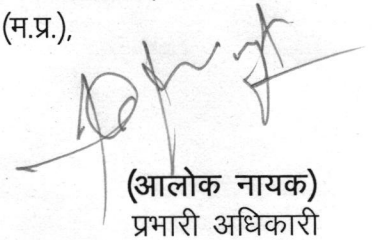 (म.प्र.),
(आलोक नायक)
प्रभारी अधिकारी